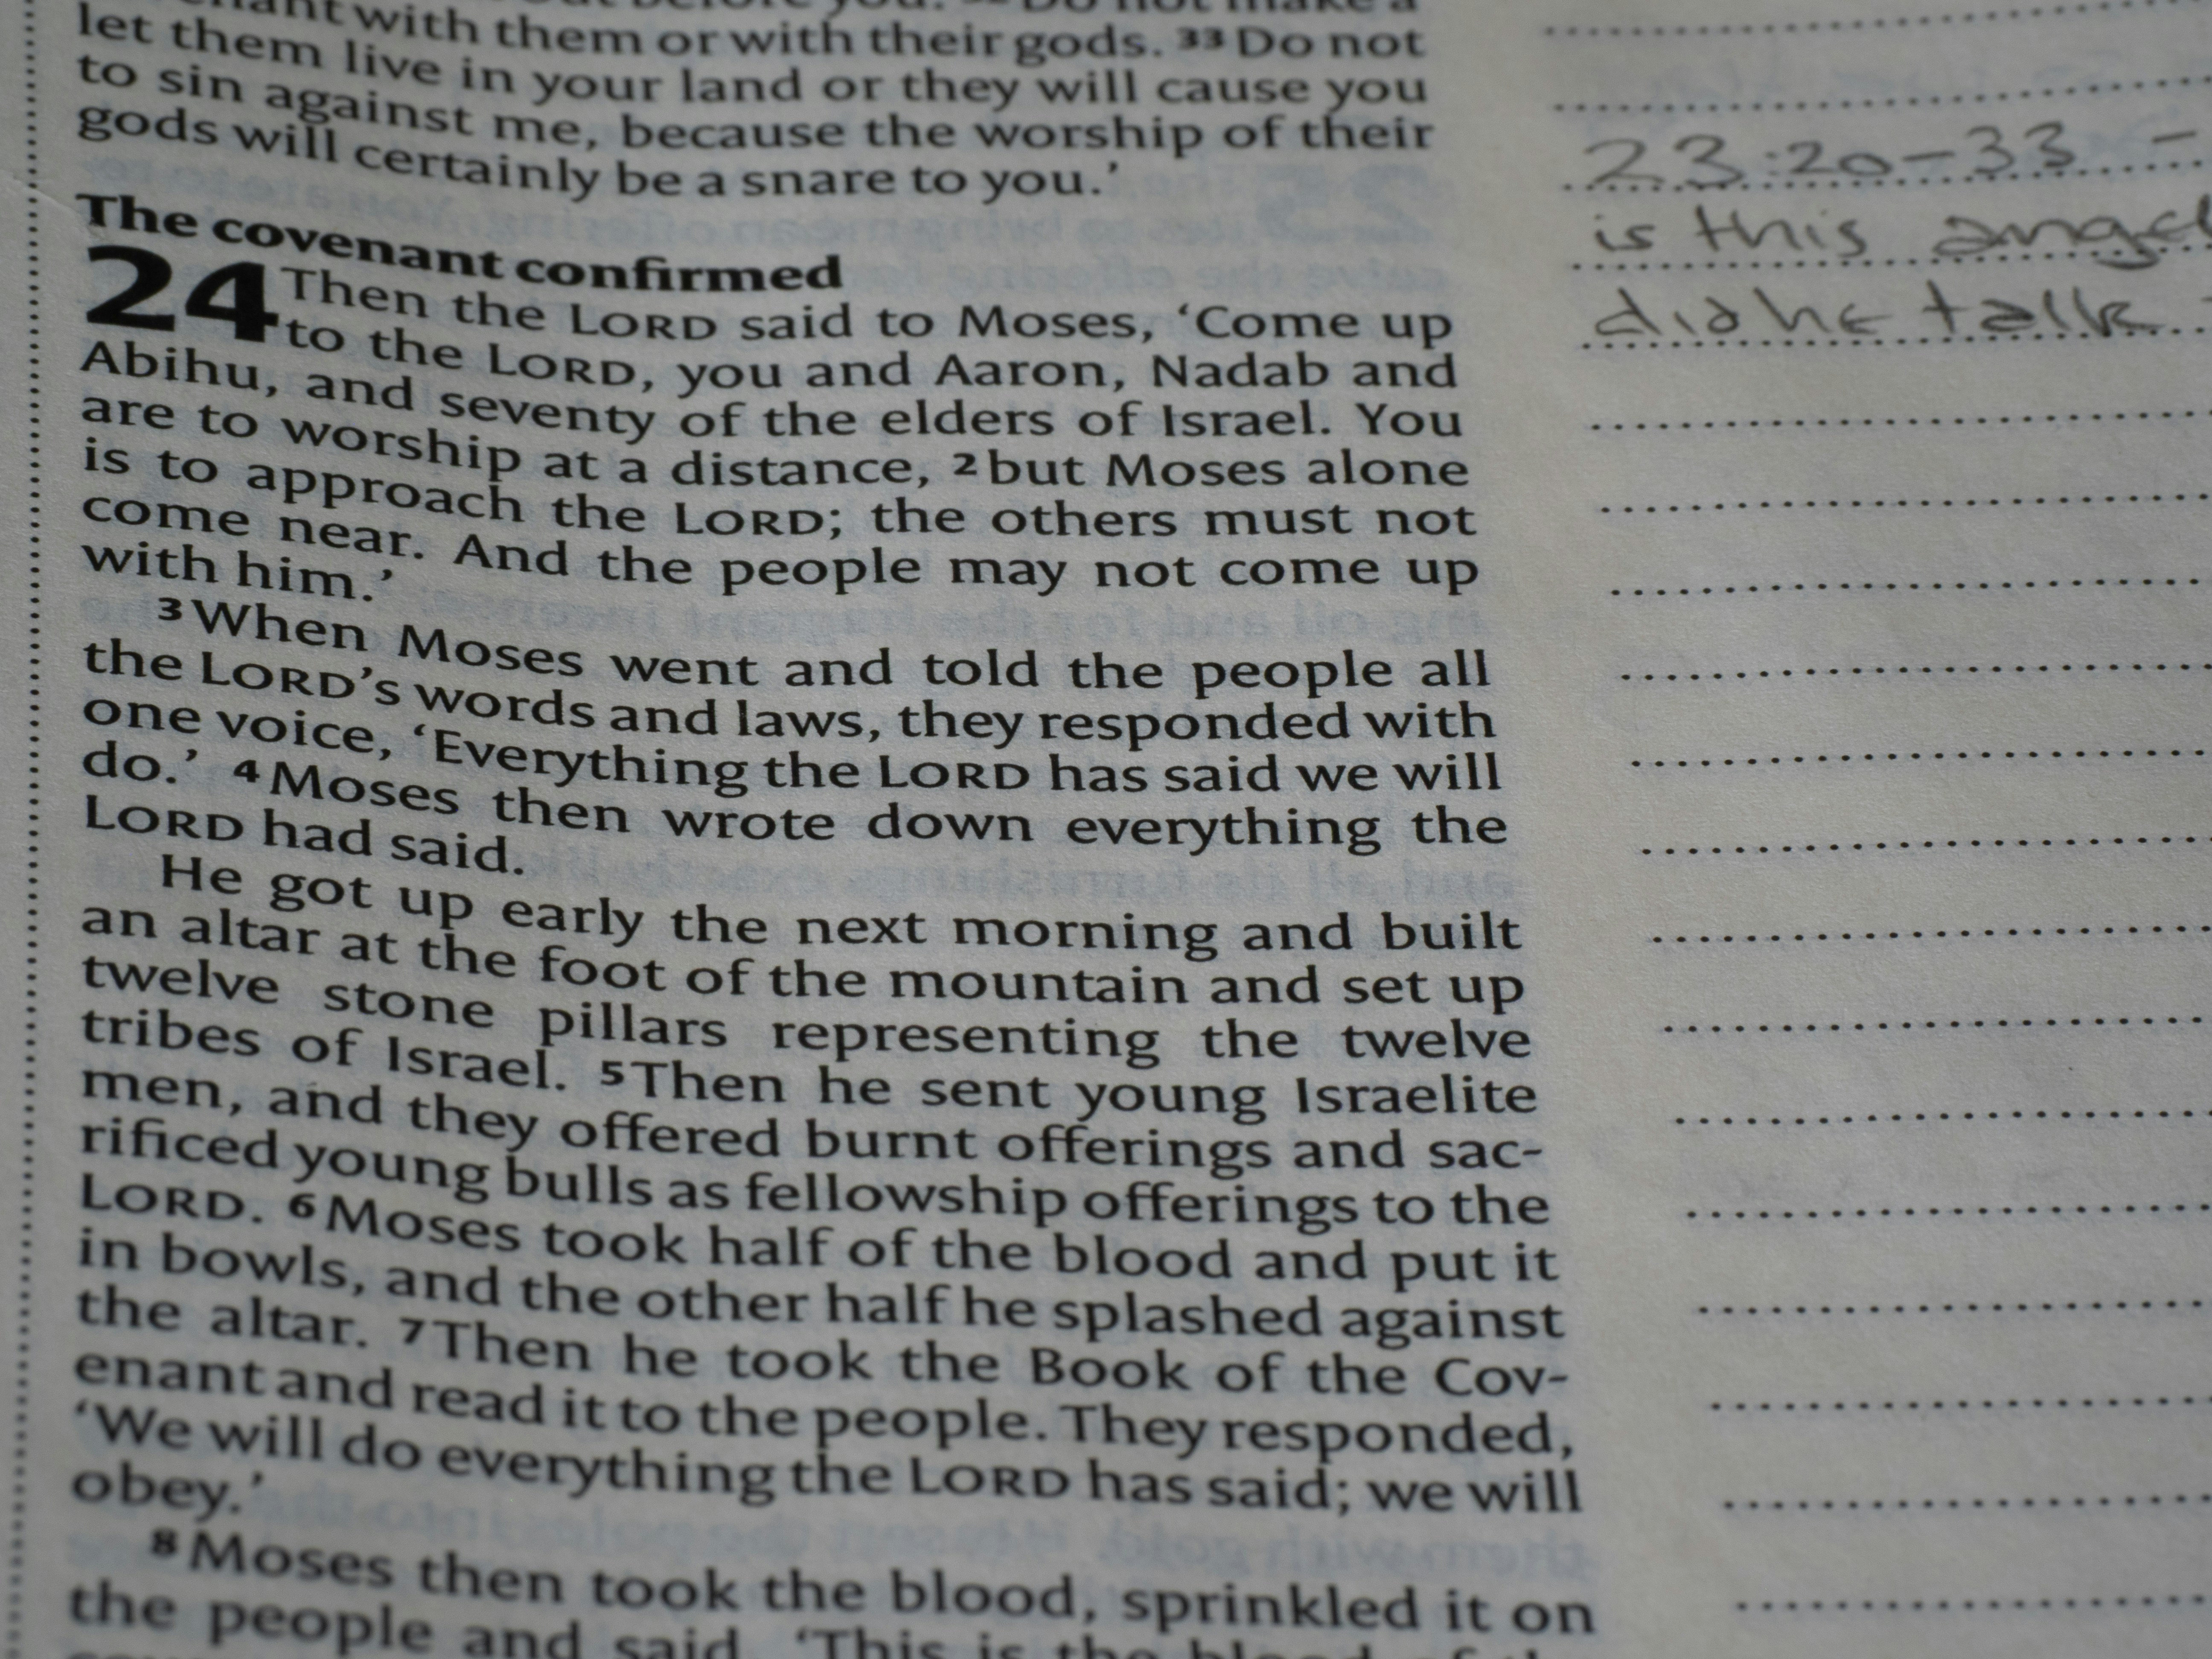 with them or with their gods. 33 Do not
let them live in your land or they will cause you
to sin against me, because the worship of their
gods will certainly be a snare to you.’
The covenant confirmed
24 Then the LORD said to Moses, ‘Come up
to the LORD, you and Aaron, Nadab and
Abihu, and seventy of the elders of Israel. You
are to worship at a distance, 2 but Moses alone
is to approach the LORD; the others must not
come near. And the people may not come up
with him.’
3 When Moses went and told the people all
the LORD’s words and laws, they responded with
one voice, ‘Everything the LORD has said we will
do.’ 4 Moses then wrote down everything the
LORD had said.
He got up early the next morning and built
an altar at the foot of the mountain and set up
twelve stone pillars representing the twelve
tribes of Israel. 5 Then he sent young Israelite
men, and they offered burnt offerings and sac-
rificed young bulls as fellowship offerings to the
LORD. 6 Moses took half of the blood and put it
in bowls, and the other half he splashed against
the altar. 7 Then he took the Book of the Cov-
enant and read it to the people. They responded,
‘We will do everything the LORD has said; we will
obey.’
8 Moses then took the blood, sprinkled it on
the people and said, ‘This is the blood of the
23:20-33 -
is this angel
did he talk